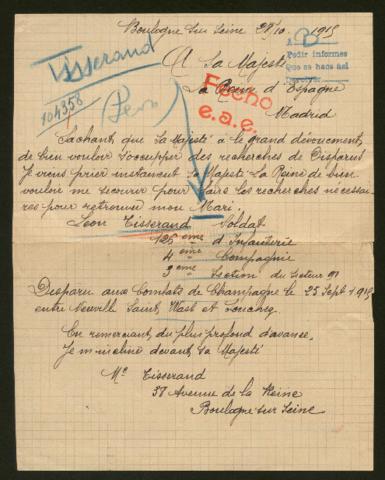 Boulogne sur Seine 28/10. 1915
A
Pedir informes
Que se hace así
Tisserand
104358
Leon
A Sa Majesté
La Reine d'Espagne
Madrid
Fecho
e.a.e.
Sachant que Sa Majesté à le grand dévouement,
de bien vouloir s'occupper des recherches de Disparus
Je viens prier instanment Sa Majesté La Reine de bien
vouloir me secourir pour faire les recherches nécessai-
res pour retrouver mon Mari,
Leon Tisserand Soldat
126 ème d'Infanterie
4 ème Compagnie
3 ème Section du Secteur 91
Disparu aux Combats de Champagne le 25 Sept. 1915
entre Neuville Saint, Wast et Souchez
En remerciant du plus profond d'avance,
Je m'incline devant, Sa Majesté
Me Tisserand
37 Avenue de la Reine
Boulogne sur Seine